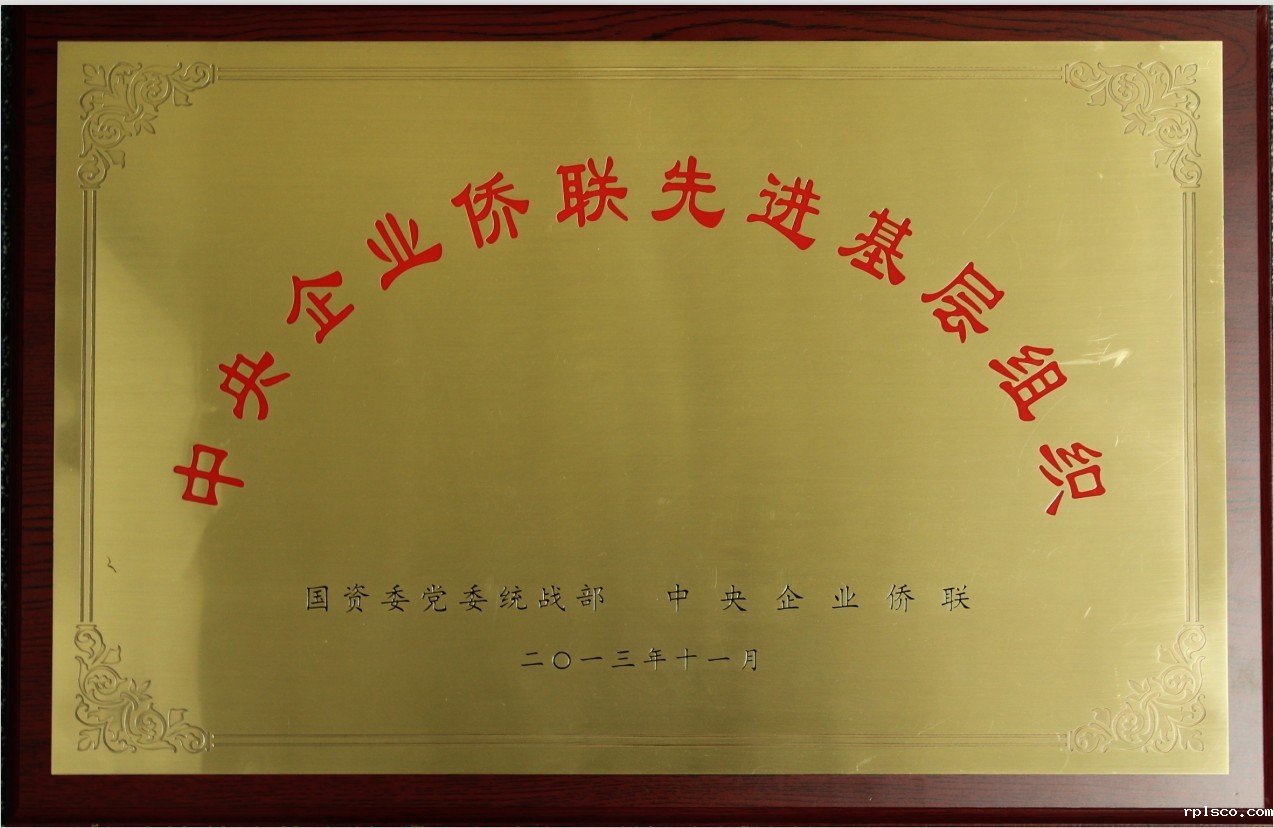 中央企业侨联先进基层组织
国资委党委统战部 中央企业侨联
二〇一三年十一月
rplsco.com